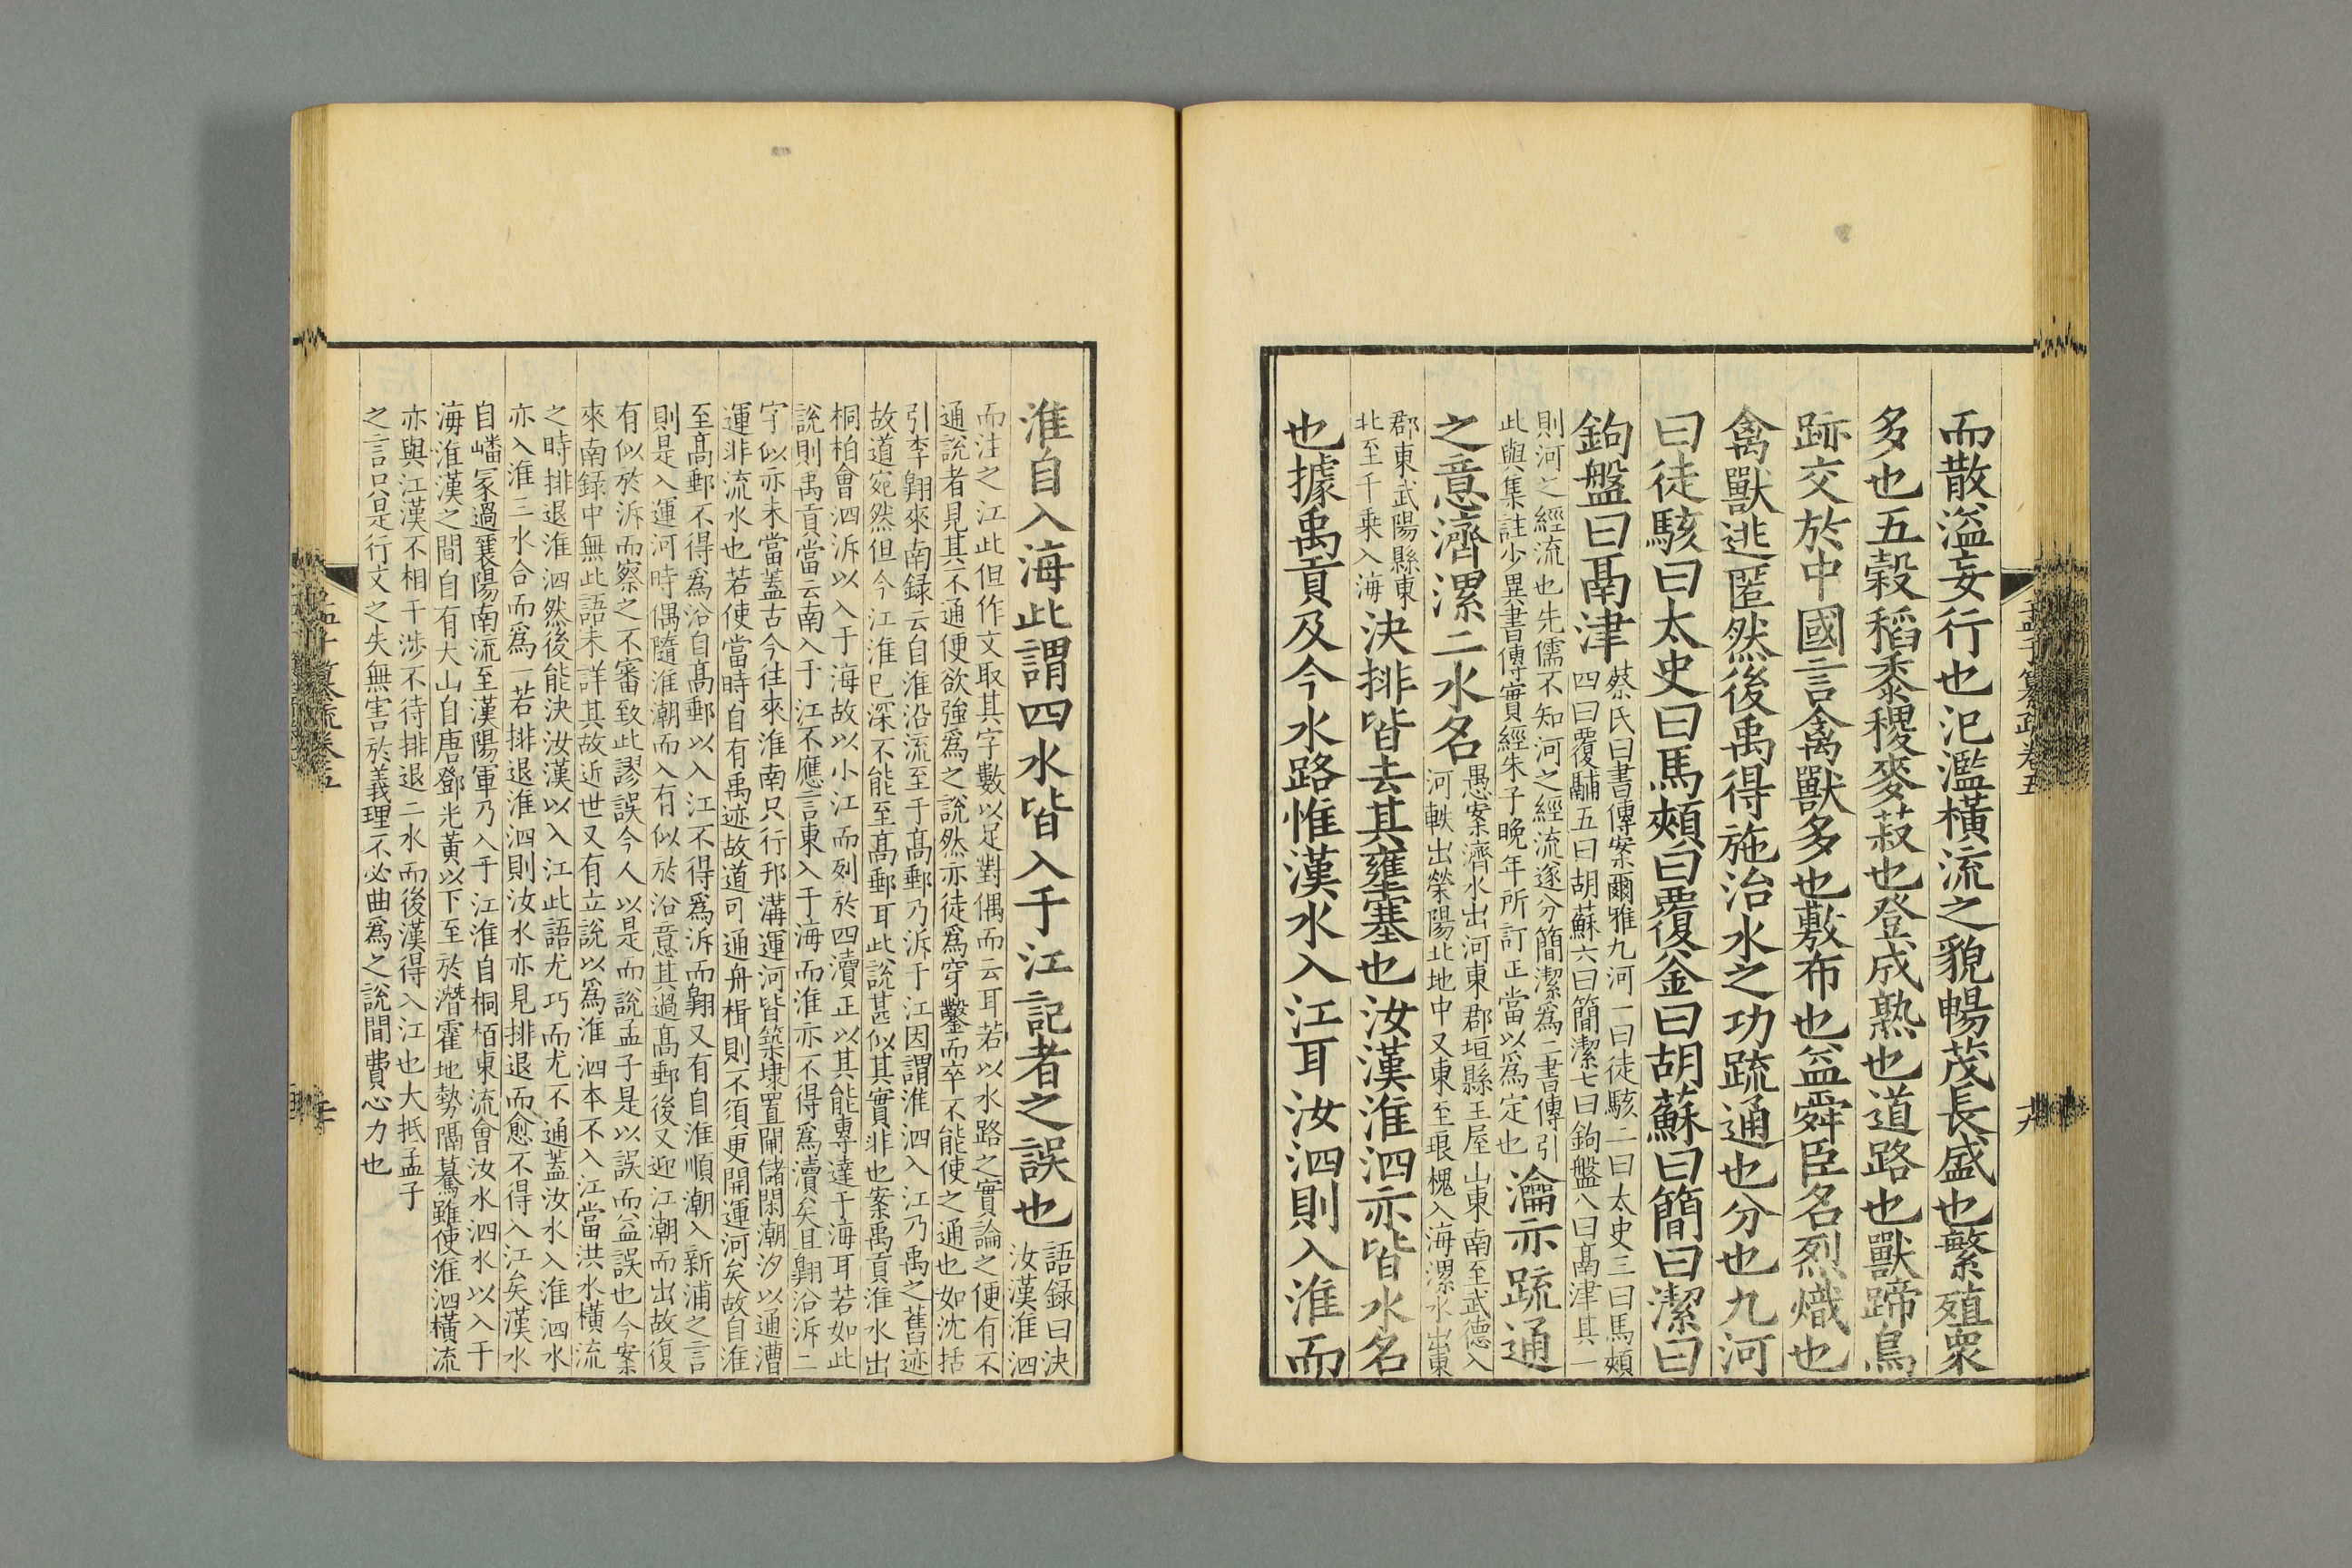 而散溢妄行也氾濫橫流之貌暢茂長盛也繁殖衆
多也五穀稻黍稷麥菽也登成熟也道路也獸蹄鳥
跡交於中國言禽獸多也敷布也益舜臣名烈熾也
禽獸逃匿然後禹得施治水之功疏通也分也九河
曰徒駭曰太史曰馬頰曰覆釜曰胡蘇曰簡曰潔曰
鉤盤曰鬲津
蔡氏曰書傳案爾雅九河一曰徒駭二曰太史三曰馬頰
四曰覆鬴五曰胡蘇六曰簡潔七曰鉤盤八曰鬲津其一
則河之經流也先儒不知河之經流遂分簡潔爲二書傳引
此與集註少異書傳實經朱子晚年所訂正當以爲定也
瀹亦疏通
之意濟漯二水名
愚案濟水出河東郡垣縣王屋山東南至武德入
河軼出滎陽北地中又東至琅槐入海漯水出東
郡東武陽縣東
北至千乗入海
決排皆去其壅塞也汝漢淮泗亦皆水名
也據禹貢及今水路惟漢水入江耳汝泗則入淮而
孟子纂疏卷五
九
淮自入海此謂四水皆入于江記者之誤也
語録曰決
汝漢淮泗
而注之江此但作文取其字數以足對偶而云耳若以水路之實論之便有不
通說者見其不通便欲強爲之說然亦徒爲穿鑿而卒不能使之通也如沈括
引李翺來南録云自淮沿流至于高郵乃泝于江因謂淮泗入江乃禹之舊迹
故道宛然但今江淮已深不能至高郵耳此說甚似其實非也案禹貢淮水出
桐柏會泗泝以入于海故以小江而列於四瀆正以其能專達于海耳若如此
說則禹貢當云南入于江不應言東入于海而淮亦不得爲瀆矣且翺沿泝二
字似亦未當蓋古今往來淮南只行邗溝運河皆築埭置閘儲閑潮汐以通漕
運非流水也若使當時自有禹迹故道可通舟楫則不須更開運河矣故自淮
至高郵不得爲沿自高郵以入江不得爲泝而翺又有自淮順潮入新浦之言
則是入運河時偶隨淮潮而入有似於沿意其過高郵後又迎江潮而出故復
有似於泝而察之不審致此謬誤今人以是而說孟子是以誤而益誤也今案
來南録中無此語未詳其故近世又有立說以爲淮泗本不入江當洪水橫流
之時排退淮泗然後能決汝漢以入江此語尤巧而尤不通蓋汝水入淮泗水
亦入淮三水合而爲一若排退淮泗則汝水亦見排退而愈不得入江矣漢水
自嶓冢過襄陽南流至漢陽軍乃入于江淮自桐栢東流會汝水泗水以入于
海淮漢之間自有大山自唐鄧光黃以下至於潛霍地勢隔驀雖使淮泗橫流
亦與江漢不相干涉不待排退二水而後漢得入江也大抵孟子
之言只是行文之失無害於義理不必曲爲之說閒費心力也